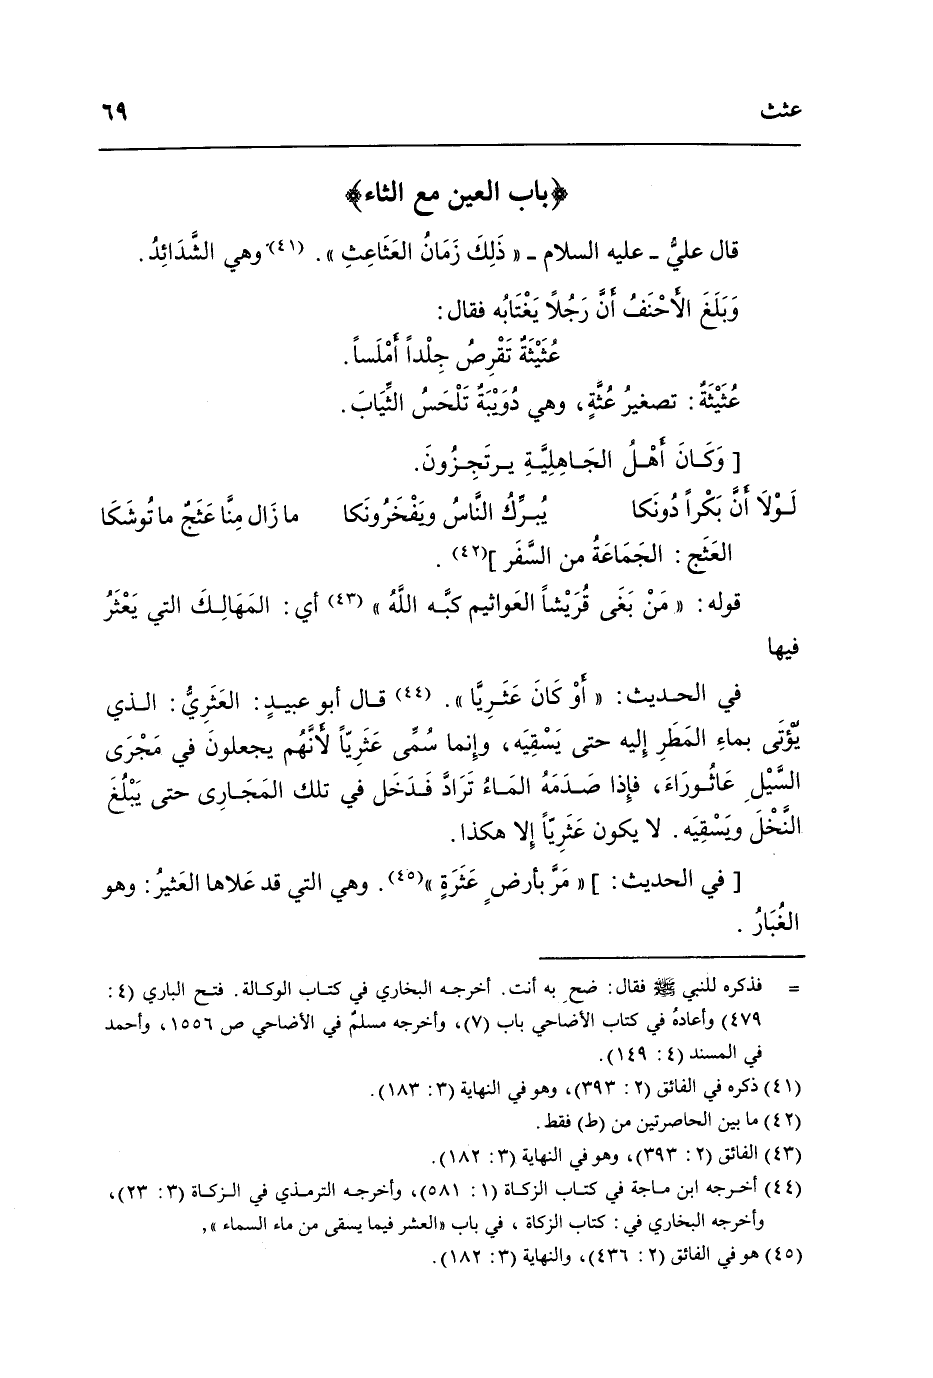 عثث ٦٩
﴿باب العين مع الثاء﴾
قال عليُّ ـ عليه السلام ـ « ذَلِكَ زَمَانُ العَثَاعِثِ » . (٤١) وهي الشَّدَائِدُ .
وَبَلَغَ الأَحْنَفُ أَنَّ رَجُلًا يَغْتَابُه فقال :
عُثَيْثَةٌ تَقْرِصُ جِلْداً أَمْلَساً .
عُثَيْثَةٌ : تصغيرُ عُثَّةٍ ، وهي دُوَيْبَةٌ تَلْحَسُ الثِّيَابَ .
[ وَكَـانَ أَهْـلُ الجَـاهِلِيَّـةِ يـرتَجِـزُونَ .
لَـوْلَا أَنَّ بَكْراً دُونَكا يُبـرِّكُ النَّاسُ ويَفْخَرُونَكا ما زَال مِنَّا عَثَجٌ ما تُوشَكَا
العَثَج : الجَمَاعَةُ من السَّفَر ](٤٢) .
قوله : « مَنْ بَغَى قُرَيْشاً العَواثيم كبَّـه اللَّهُ » (٤٣) أي : المَهَالِـكَ التي يَعْثَرُ
فيها
في الحـديث : « أَوْ كَانَ عَثَـرِيَّا » . (٤٤) قـال أبو عبيـدٍ : العَثَرِيُّ : الـذي
يُؤْتَى بماءِ المَطَرِ إليه حتى يَسْقِيَه ، وإنما سُمِّى عَثَرِيّاً لأَنَّهُم يجعلونَ في مَجْرَى
السَّيْلِ عَاثُـورَاءَ ، فإذا صَـدَمَهُ المَـاءُ تَرَادَّ فَـدَخَل في تلك المَجَـارِى حتى يَبْلُغَ
النَّخْلَ ويَسْقِيَه . لا يكون عَثَرِيّاً إلا هكذا .
[ في الحديث : ] « مَرَّ بأرضٍ عَثَرَةٍ »(٤٥). وهي التي قد عَلاها العَثيرُ : وهو
الغُبَارُ .
= فذكره للنبي ﷺ فقال : ضحِ به أنت . أخرجـه البخاري في كتـاب الوكـالة . فتـح الباري (٤ :
٤٧٩) وأعادهُ في كتاب الأضاحي باب (٧) ، وأخرجه مسلمٌ في الأضاحي ص ١٥٥٦ ، وأحمد
في المسند (٤ : ١٤٩) .
(٤١) ذكره في الفائق (٢ : ٣٩٣) ، وهو في النهاية (٣ : ١٨٣) .
(٤٢) ما بين الحاصرتين من (ط) فقط .
(٤٣) الفائق (٢ : ٣٩٣) ، وهو في النهاية (٣ : ١٨٢) .
(٤٤) أخـرجه ابن مـاجة في كتـاب الزكـاة (١ : ٥٨١) ، وأخرجـه الترمـذي في الـزكـاة (٣ : ٢٣) ،
وأخرجه البخاري في : كتاب الزكاة ، في باب «العشر فيما يسقى من ماء السماء » ,
(٤٥) هو في الفائق (٢ : ٤٣٦) ، والنهاية (٣ : ١٨٢) .